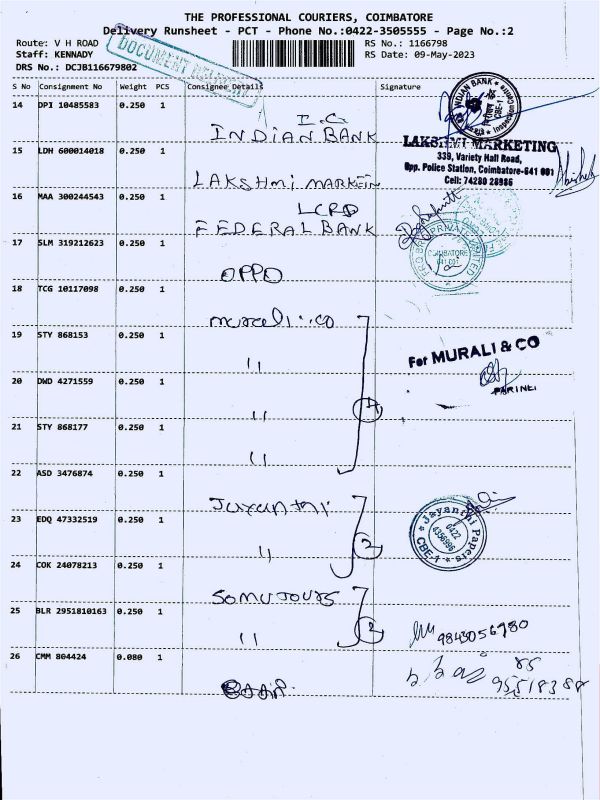 THE PROFESSIONAL COURIERS, COIMBATORE
Delivery Runsheet - PCT - Phone No.:0422-3505555 - Page No.:2
Route: V H ROAD RS No.: 1166798
Staff: KENNADY RS Date: 09-May-2023
DRS No.: DCJB116679802
DOCUMENT
S No Consignment No Weight PCS Consignee Details Signature
14 DPI 10485583 0.250 1
I.O
INDIAN BANK
INDIAN BANK
CBE-1
15 LDH 600014018 0.250 1
LAKSHMI MARKETING
339, Variety Hall Road,
Opp. Police Station, Coimbatore-641 001
Cell: 74280 28986
LAKSHMI MARKETIN
16 MAA 300244543 1
0.250
LCRD
FEDERAL BANK
17 SLM 319212623 0.250 1
PRIVATE LIMITED
COIMBATORE
641 001
OPPO
18 TCG 10117098 0.250 1
murali & co
19 STY 868153 0.250 1
For MURALI & CO
"
20 DWD 4271559 0.250 1
"
21 STY 868177 0.250 1
"
22 ASD 3476874 0.250 1
Jayanthi
23 EDQ 47332519 0.250 1
Jayanthi Papers
0422
4356996
CBE-1
"
24 COK 24078213 0.250 1
2
25 BLR 2951810163 0.250 1
"
2
9843056980
26 CMM 804424 0.080 1